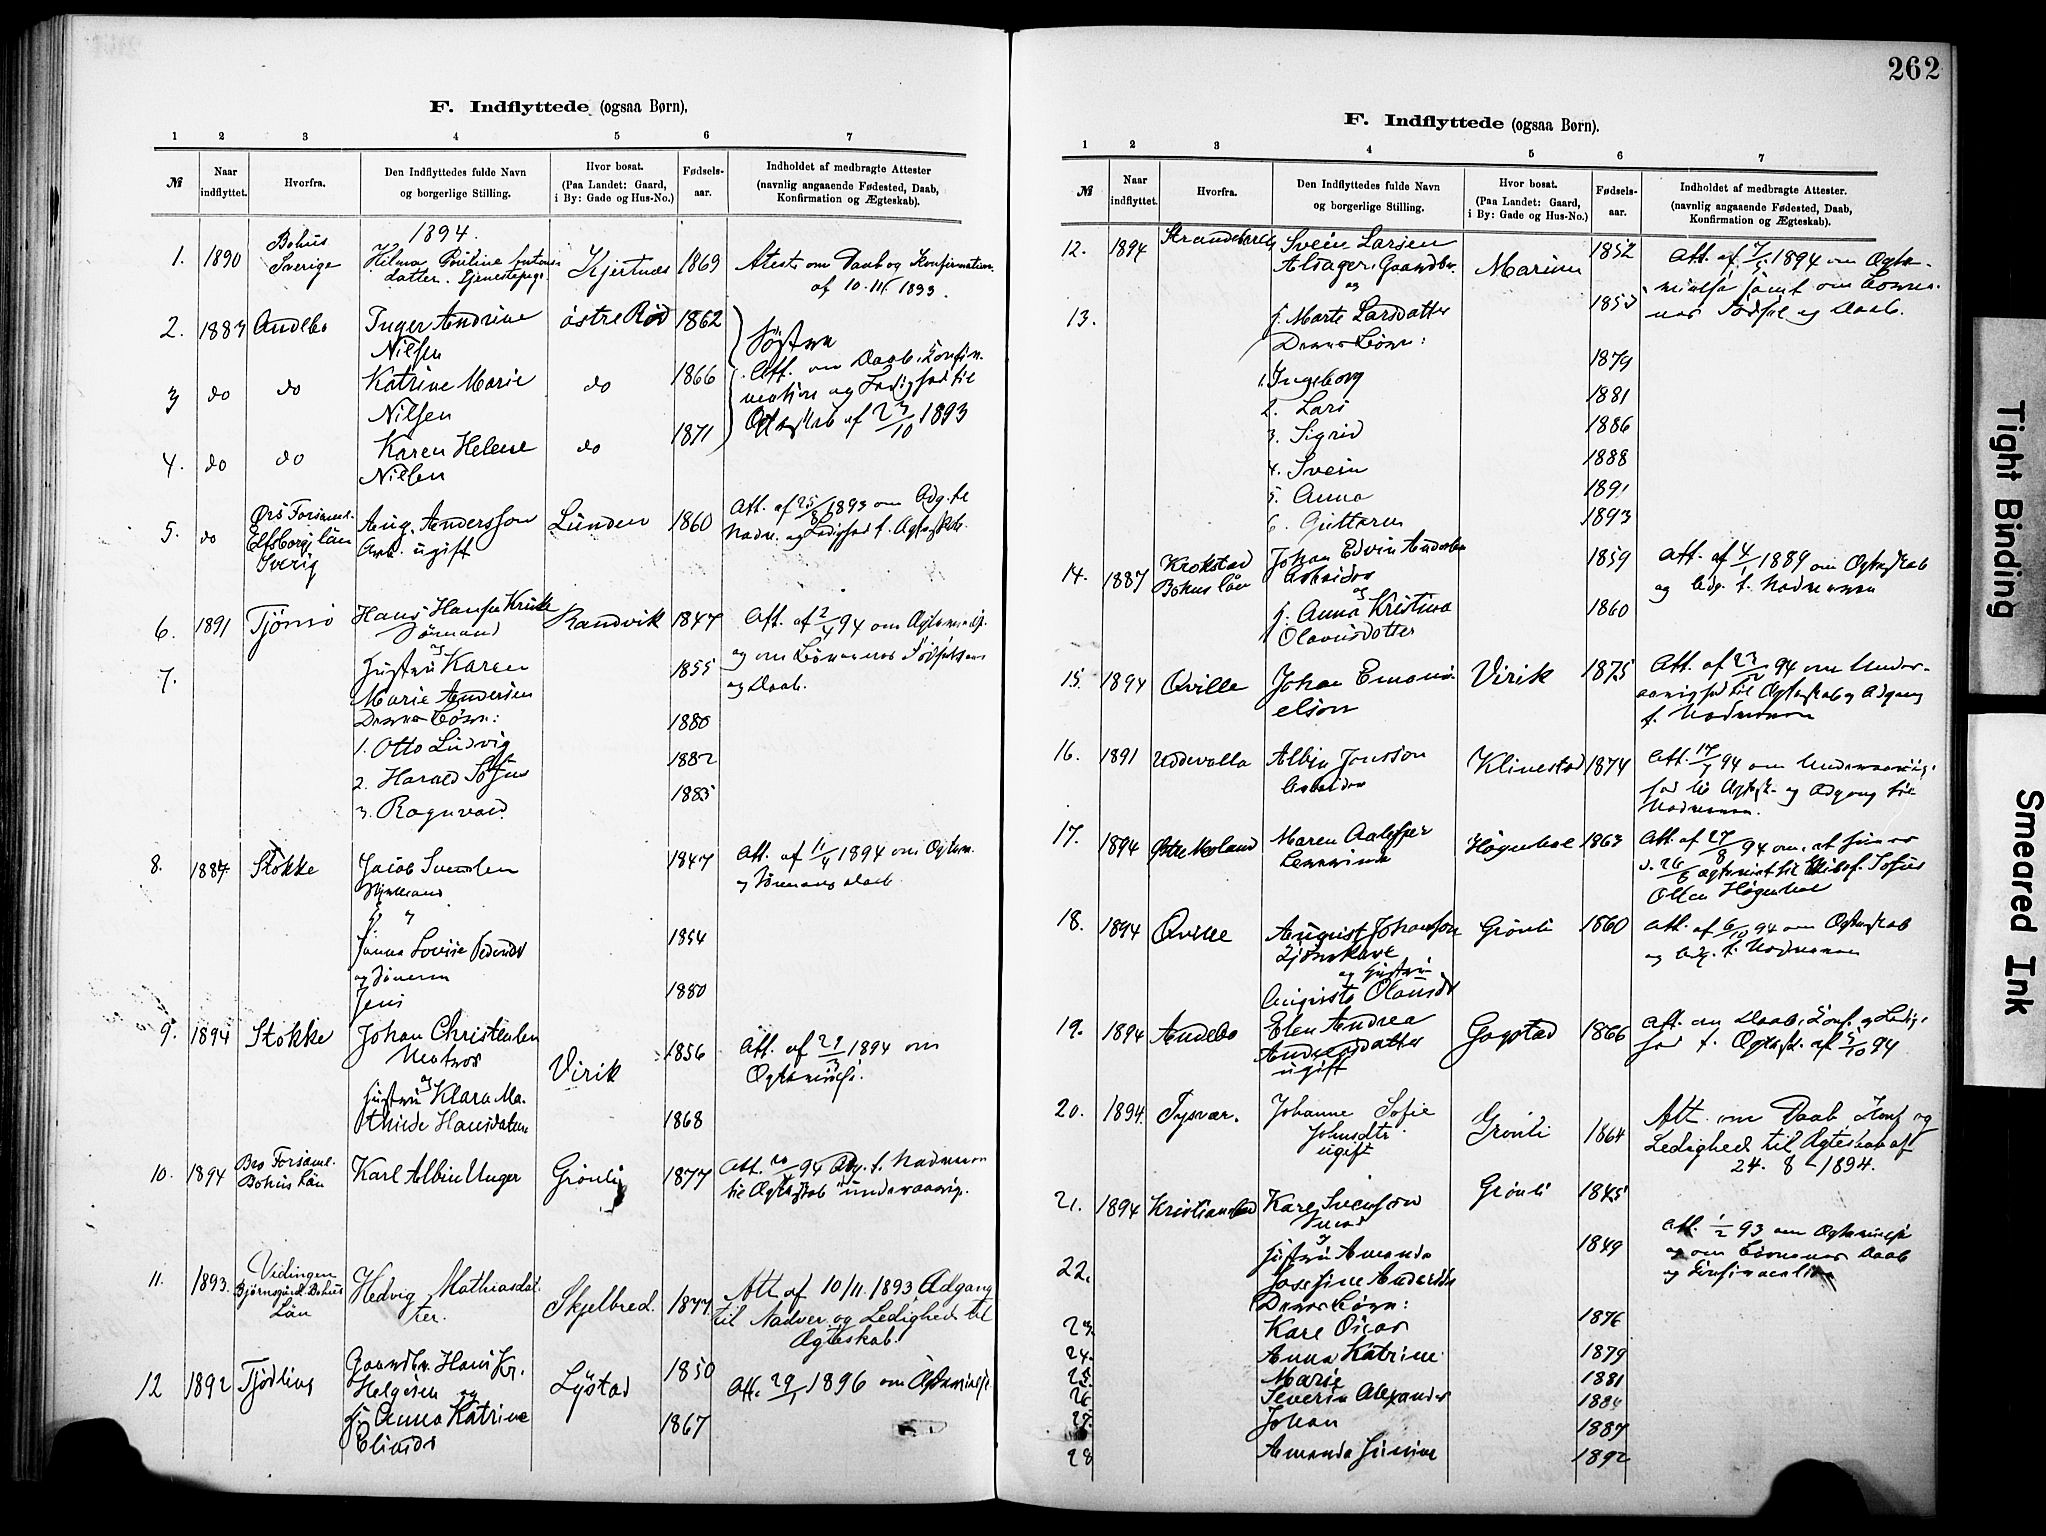 F. Indflyttede (ogsaa Børn),
1 2 3 4 5 6 7
№ Naar indflyttet. Hvorfra. Den Indflyttedes fulde Navn og borgerlige Stilling. Hvor bosat. (Paa Landet: Gaard, i By: Gade og Hus-No.) Fødsels-aar. Indholdet af medbragte Attester (navnlig angaaende Fødested, Daab, Konfirmation og Ægteskab).
1894.
1. 1890 Bohus Hilma Pauline 1869 Attest om Daab og Konfirmation
Sverige datter. Tjenestepige Kjertnæs af 10.11. 1893.
2. 1887 Andebo Inger Andrine østre Rød 1862
Nilsen Søstre
3 do do Katrine Marie do 1866 Att. om Daab, Konfir-
Nilsen mation og Ledighed til
4. do do Karen Helene do 1871 Ægteskab af 23/10 1893
Nilsen
5. do Aug. Andersson Lunden 1860 Att. af 25/8 1893 om Adg. til
Elfsborg län Arb. ugift Nadv. og Ledighed t. Ægteskab.
Sverig
6. 1891 Tjømø Hans Hansen 1847 Att. af 2/4 94 om Ægtevielse
Sømand Randvik og om Børnenes Fødselsd.
7. Hustru Karen 1855 og Daab.
Marie Andersen
Deres Børn:
1. Otto Ludvig 1880
2. Harald Sofus 1882
3. Ragnvald 1885
8. 1887 Stokke Jacob Svendsen 1847 Att. af 11/4 1894 om Ægtev.
og Sønnens Daab
Lovise 1854
og Sønnen
Jens 1880
9. 1894 Stokke Johan Christensen 1856 Att. af 29/3 1894 om
Matros Virik Ægtevielse.
og
Hustru Klara Ma-
thilde Hansdatter 1868
10. 1894 Bro Forsaml. Karl Albin Unger Grønli 1877 Att. 94 Adg. t. Nadveren
Bohus Län til Ægteskab underaarig.
11. 1893. Vidingen Hedvig Mathiasdat- Skjelbred. 1877. Att. af 10/11. 1893 Adgang
Bohus ter. til Nadver. og Ledighed til
Län Ægteskab.
12 1892 Tjødling Gaardbr. Hans Kr. Lystad 1850
Helgesen og Att. 29/1 1896 om Ægtevielse
h. Anna Katrine 1867
262
F. Indflyttede (ogsaa Børn).
1 2 3 4 5 6 7
№ Naar indflyttet. Hvorfra. Den Indflyttedes fulde Navn og borgerlige Stilling. Hvor bosat. (Paa Landet: Gaard, i By: Gade og Hus-No.) Fødsels-aar. Indholdet af medbragte Attester. (navnlig angaaende Fødested, Daab, Konfirmation og Ægteskab).
12. 1894 Strandebarm Svein Larsen 1852 Att. af 1894 om Ægte-
Alsager, Gaardbr. vielse samt om Børne-
og 1853 nes Fødsel og Daab.
13. h. Marte Larsdatter
Deres Børn:
1. Ingeborg 1879
2. Lars 1881
3. Sigrid 1886
4. Svein 1888
5. Anna 1891
6. Guttorm 1893
14. 1887 Krokstad Johan Edvin Andersen 1859 Att. af 1889 om Ægteskab
Bohus län Arbeider og Adg. t. Nadveren
og
h. Anna Kristina 1860
Olausdotter
15. 1894 Qville Johan Emanu- Virik 1875 Att. af 94 om Under-
elson aarighed til Ægteskab og Adgang
t. Nadveren
16. 1891 Uddevalla Albin Jonsson Klinestad 1874 Att. 94 om Underaarig-
Arbeider hed til Ægtesk. og Adgang til
Nadveren
17. 1894 Maren Aalesjer 1863 Att. af 27/8 94 om, at hun er
Ægteviet til Sofus
Olsen Høgenhol
18. 1894 Qville August Johanson Grønli 1860 Att. af 6/10 94 om Ægteskab
og Adg. t. Nadveren
og Hustru
Augusta
19. 1894 Andebo Elen Andrea Gogstad 1866 Att. om Daab, Konf. og Ledig-
Andersdatter hed t. Ægtesk. af 5/10 94
ugift
20. 1894. Tysvær. Johanne Sofie Grønli 1864 Att. om Daab Konf og
Johnsdtr. Ledighed til Ægteskab af
ugift 24. 8 - 1894.
21. 1894 Kristiansund Karl Svensson Grønli 1845
Smed Att. 1/2 93 om Ægtevielse
22. Hustru Amanda 1849 og om Børnenes Daab
Josefine og Konfirmation
Deres Børn:
23 Karl Oscar 1876
24. Anna Katrine 1879
25. Marie 1881
26 Severin Alexander 1884
27. Johan 1887
28 Amanda 1892
Tight Binding
Smeared Ink